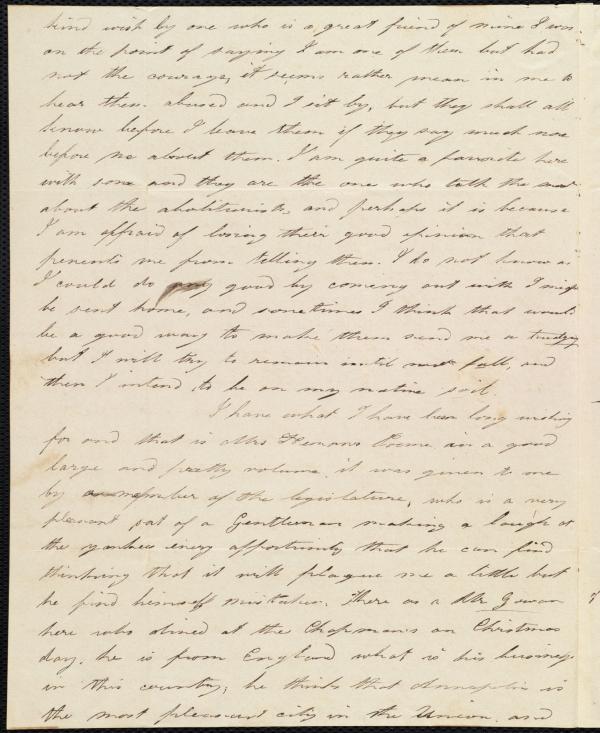 kind wish by one who is a great friend of mine I was
on the point of saying I am one of them but had
not the courage, it seems rather mean in me to
hear them abused and I sit by, but they shall all
know before I leave them if they say much more
before me about them. I am quite a favorite here
with some and they are the one who talk the most
about the abolitionists, and perhaps it is because
I am affraid of losing their good opinion that
prevents me from telling them. I do not know as
I could do any good by coming out with I might
be sent home, and sometimes I think that would
be a good way to make them send me a trudging
but I will try to remain until next fall, and
then I intend to be on my native soil.
I have what I have been long wishing
for and that is Mrs Hemans Poems in a good
large and pretty volume. it was given to me
by a member of the legislature, who is a very
pleasant sort of a Gentleman making a laugh at
the yankees every opportunity that he can find
thinking that it will plague me a little but
he find himself mistaken. There is a Mr Gowan
here who dined at the Chapman's on Christmas
day. he is from England what is his business
in this country, he thinks that Annapolis is
the most pleasant city in the Union. and